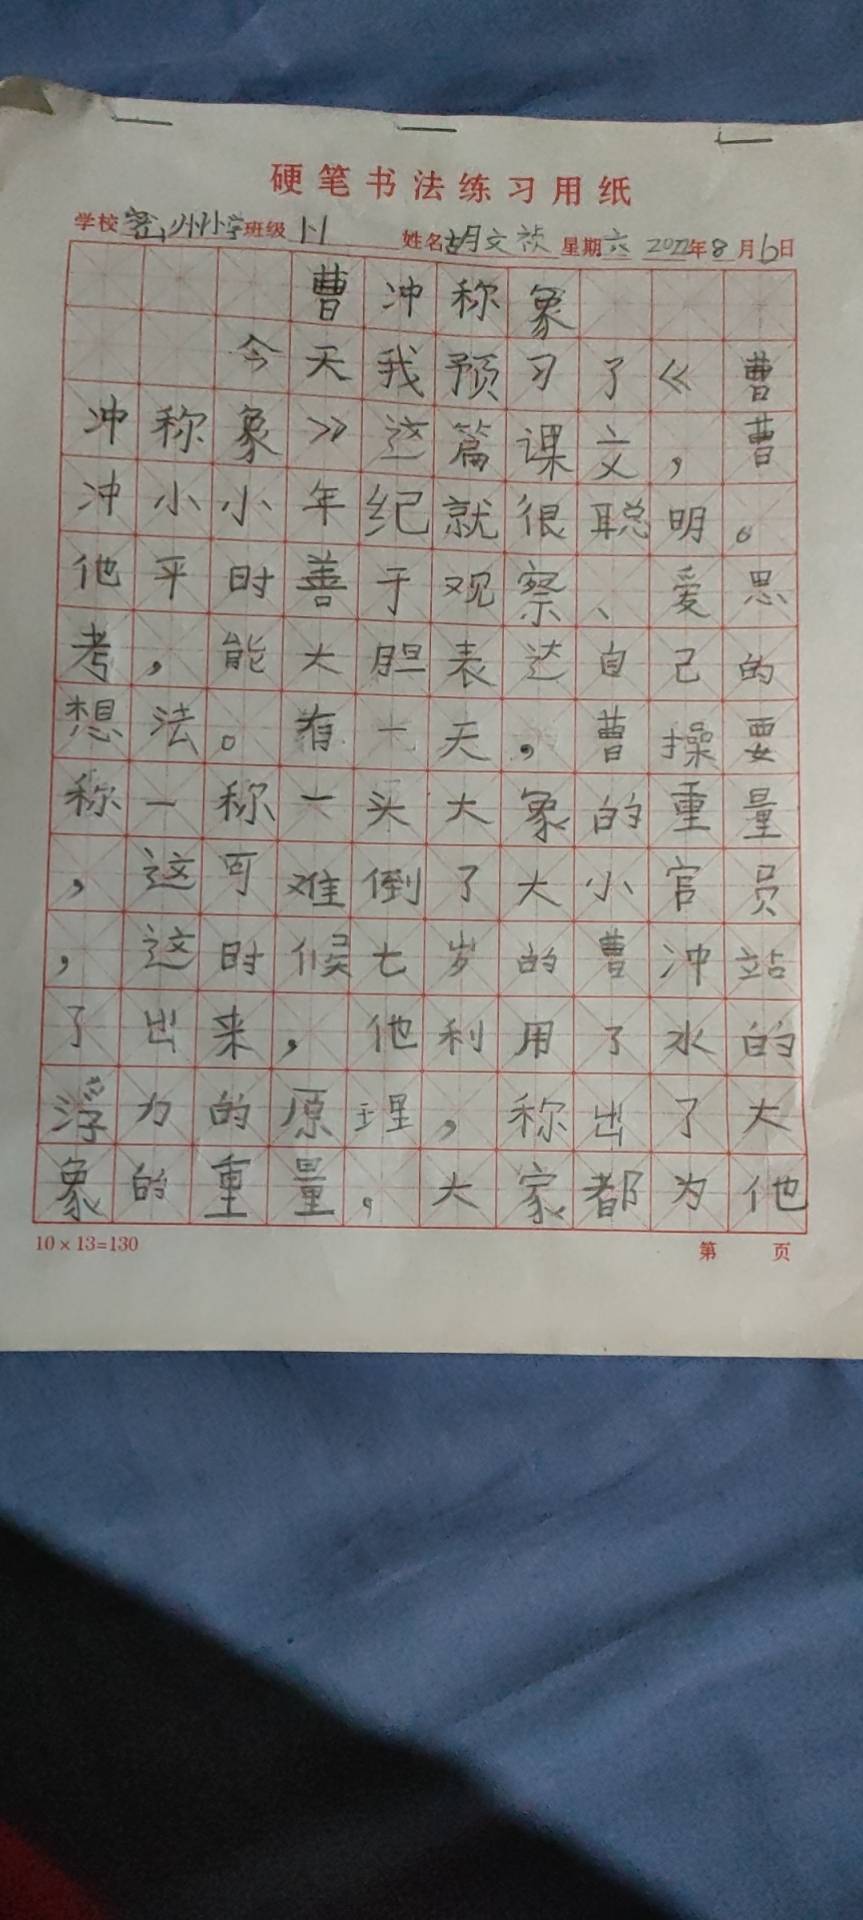 硬笔书法练习用纸
学校密州小学班级1-1 姓名胡文祯 星期六 2022年8月6日
曹冲称象
今天我预习了《曹
冲称象》这篇课文，曹
冲小小年纪就很聪明。
他平时善于观察、爱思
考，能大胆表达自己的
想法。有一天，曹操要
称一称一头大象的重量
，这可难倒了大小官员
，这时候七岁的曹冲站
了出来，他利用了水的
浮力的原理，称出了大
象的重量，大家都为他
10×13=130 第 页